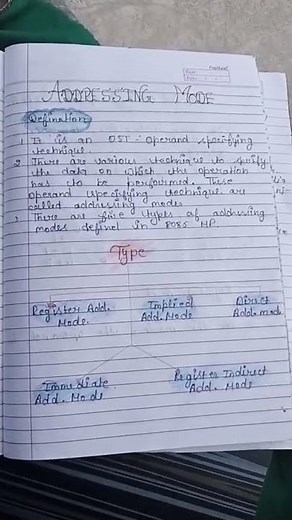 ADDRESSING MODE
Defination
1. It is an OST - Operand specifying
technique.
2. There are various technique to specify
the data on which the operation
has to be performed. These
operand specifying technique are
called addressing modes
3. There are five types of addressing
modes defined in 8085 MP.
Type
Register Add. Mode.
Implied Add. Mode
Direct Add. mode
Immediate Add. Mode
Register Indirect Add. Mode